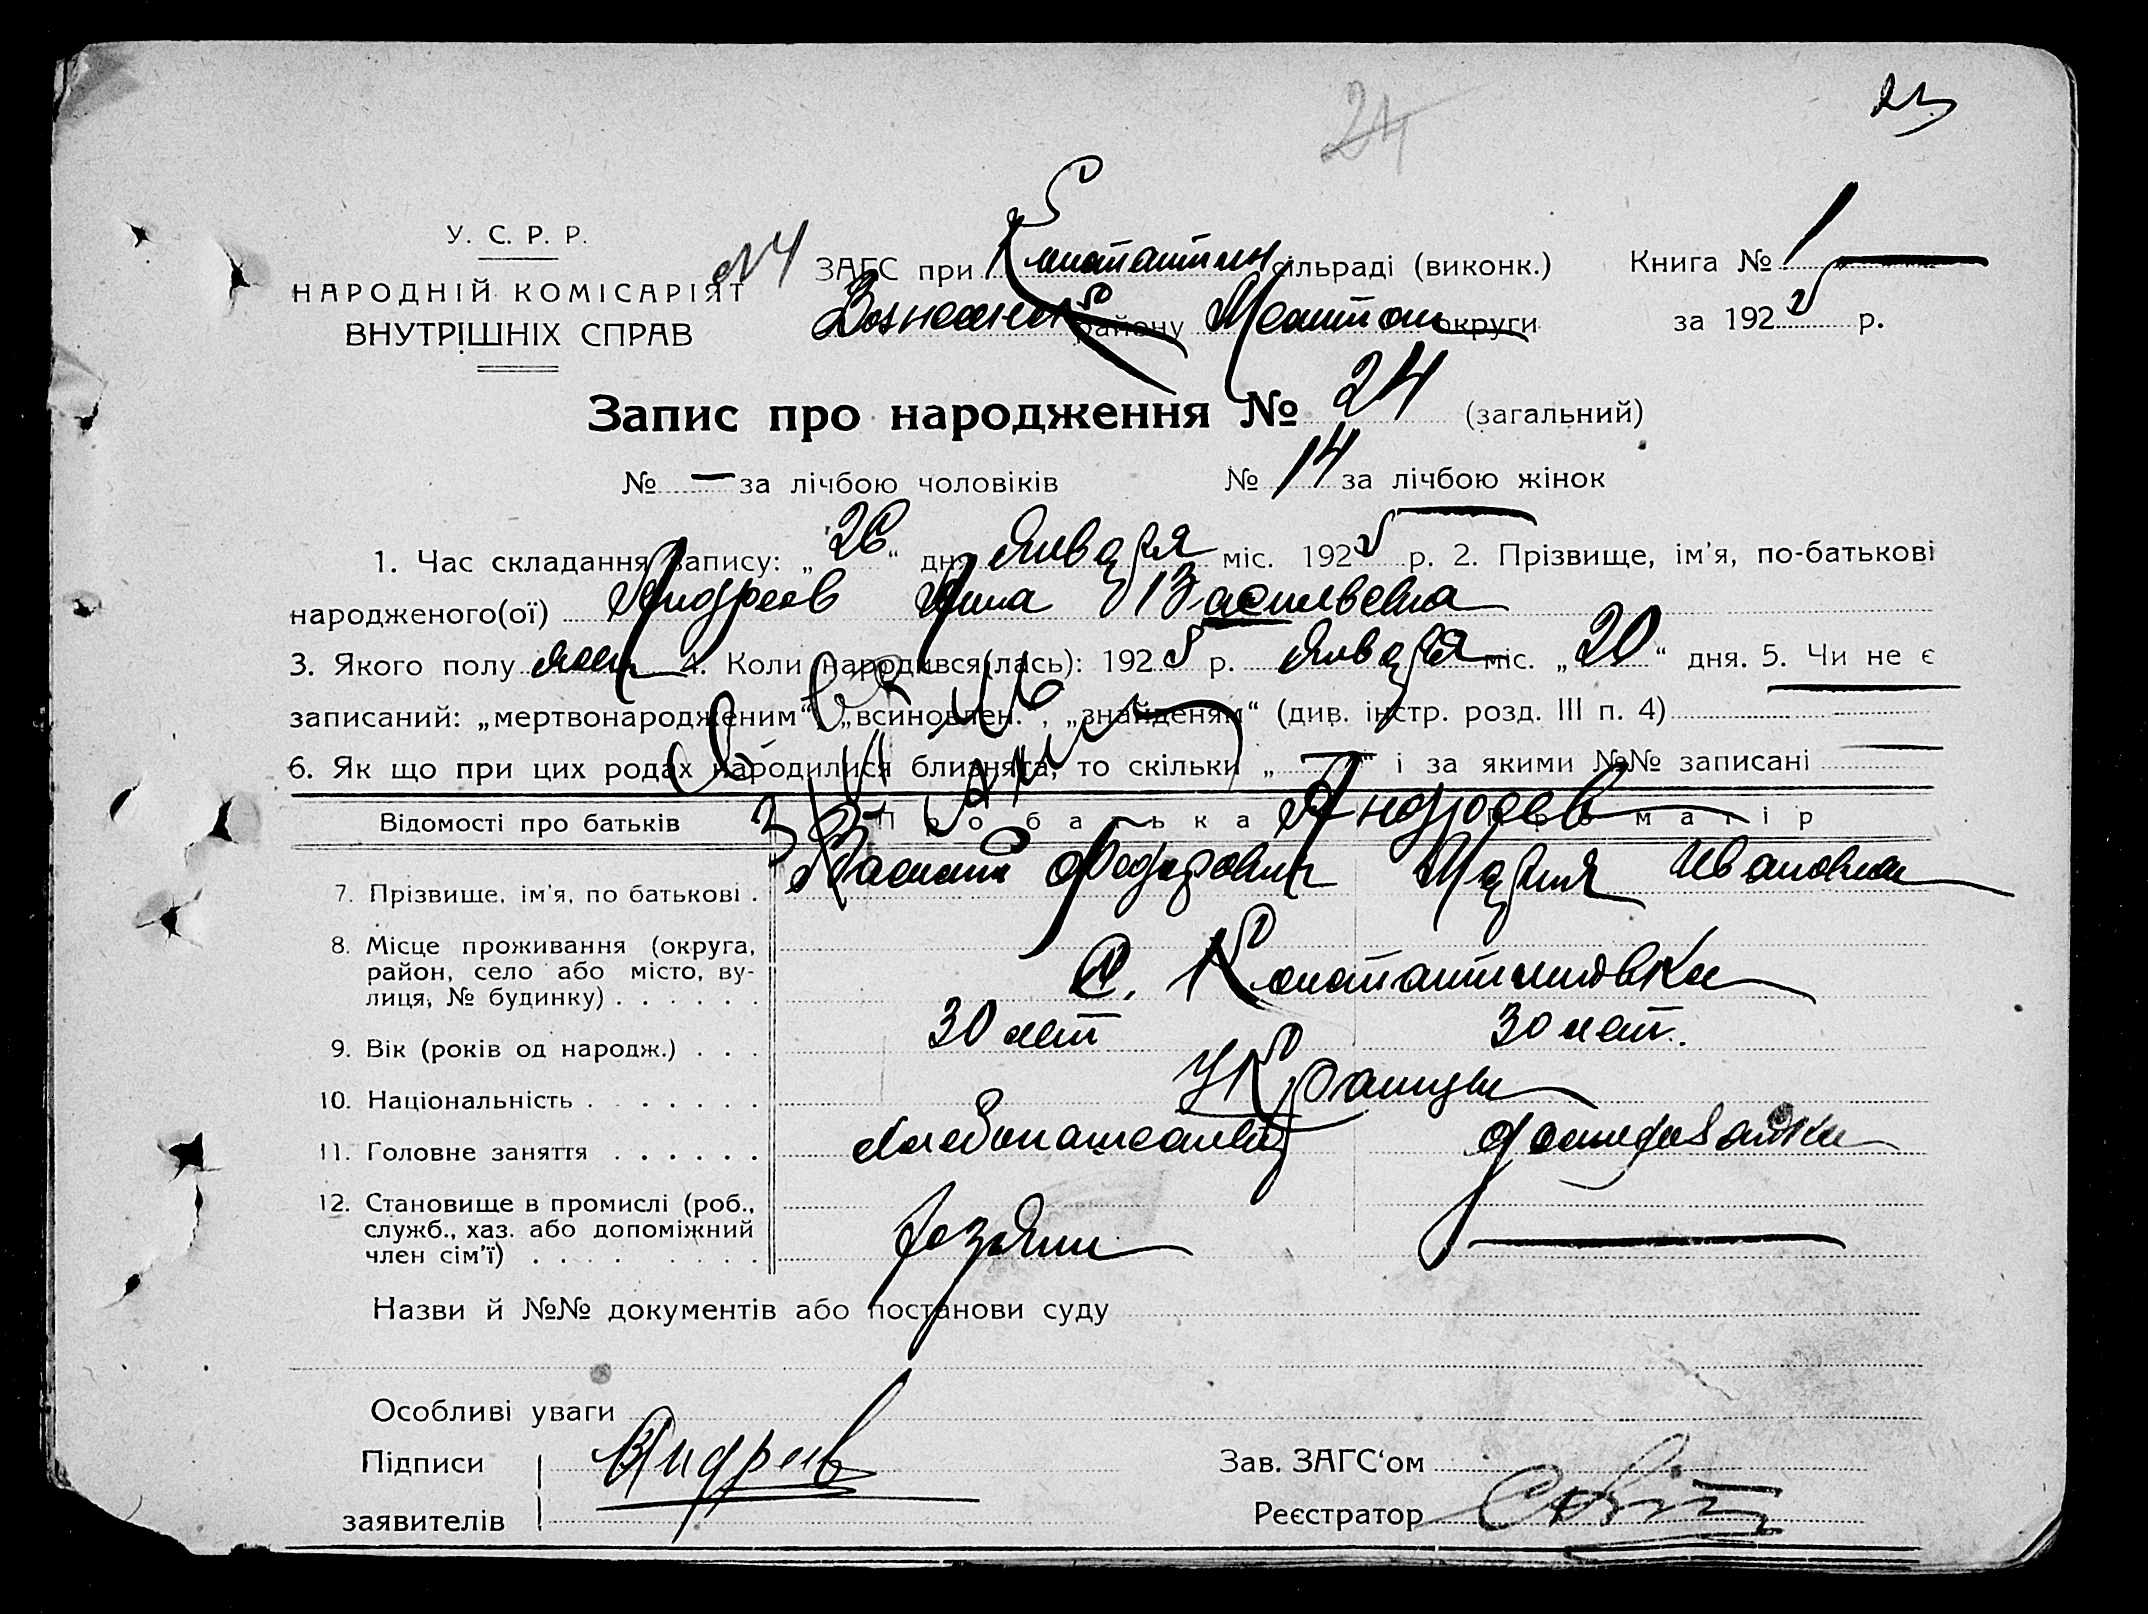 24
23
У. С. Р. Р.
НАРОДНІЙ КОМІСАРІЯТ
ВНУТРІШНІХ СПРАВ
№4 ЗАГС при Константин сільраді (виконк.) Книга № 1
Вознесенск району округи за 1925 р.
Запис про народження № 24 (загальний)
№ — за лічбою чоловіків № 14 за лічбою жінок
1. Час складання запису: „26“ дня Января міс. 1925 р. 2. Прізвище, ім'я, по-батькові
народженого(ої) Андреев Анна Васильевна
3. Якого полу жен 4. Коли народився(лась): 1925 р. Января міс. „20“ дня. 5. Чи не є
записаний: „мертвонародженим“, „всиновлен.“, „знайденям“ (див. інстр. розд. III п. 4)
6. Як що при цих родах народилися близнята, то скільки „ — “ і за якими №№ записані —
Відомості про батьків Про батька Андреев Про матір
7. Прізвище, ім'я, по батькові . Василий Федорович Мария Ивановна
8. Місце проживання (округа, район, село або місто, вулиця, № будинку) . . . . . . с. Константиновка
9. Вік (років од народж.) . . . 30 лет 30 лет.
10. Національність . . . . . . . Украинцы
11. Головне заняття . . . . . . Хлебопашество домохозяйка
12. Становище в промислі (роб., служб., хаз. або допоміжний член сім'ї) . . . . . . . хозяин —
Назви й №№ документів або постанови суду
Особливі уваги
Підписи Андреев Зав. ЗАГС'ом
заявителів Реєстратор